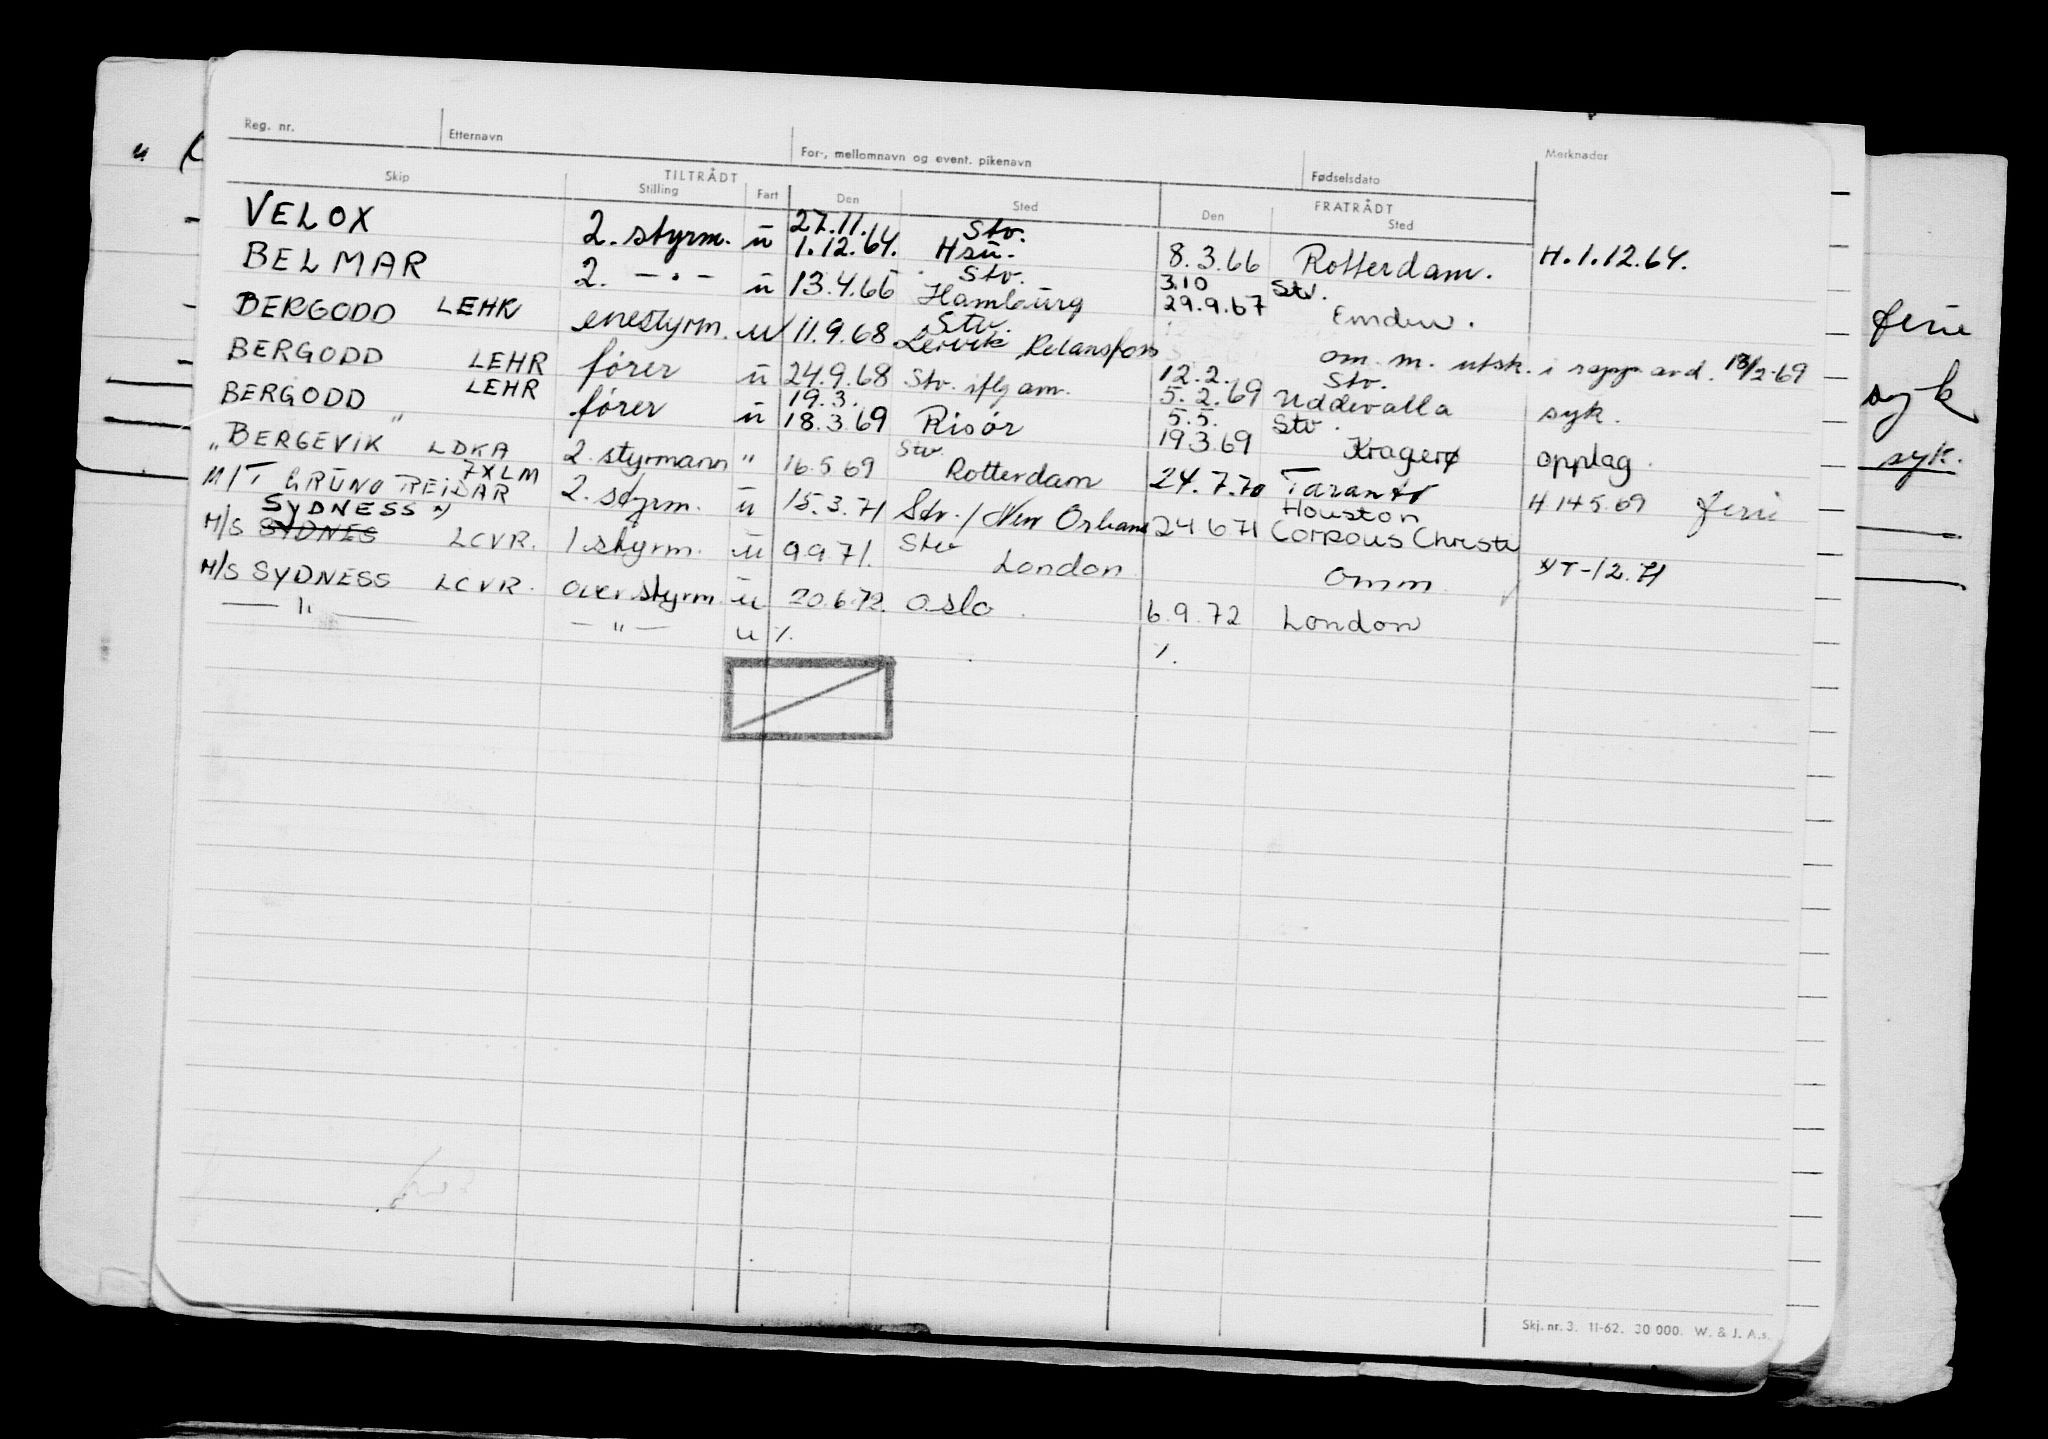 Reg. nr. Etternavn For-, mellomnavn og event. pikenavn Fødselsdato Merknader
TILTRÅDT FRATRÅDT
Skip Stilling Fart Den Sted Den Sted
27.11. Stv.
VELOX 2. styrm. u 1.12.64. Hsu. 8.3.66 Rotterdam. H.1.12.64.
Stv. 3.10 Stv.
BELMAR 2. -"- u 13.4.66 Hamburg 29.9.67 Emden.
Stv.
BERGODD LEHR enestyrm. u 11.9.68 Leirvik om. m. utsk. i rapp. avd. 13/2-69
12.2. Stv.
BERGODD LEHR fører u 24.9.68 Stv. 5.2.69 Uddevalla syk.
19.3. 5.5. Stv.
BERGODD LEHR fører u 18.3.69 Risør 19.3.69 Kragerø opplag.
Stv.
" BERGEVIK " LDKA 2. styrmann " 16.5.69 Rotterdam 24.7.70 Taranto H 14.5.69 ferie
7XLM Houston
M/T GRUNO REIDAR 2. styrm. u 15.3.71 Stv. / New Orleans 24.6.71 Corpous Christi
SYDNESS Stv
M/S SYDNES LCVR. 1 styrm. u 9.9.71. London Omm T-12.71
M/S SYDNESS LCVR. overstyrm. u 20.6.72. Oslo. 6.9.72 London
— " — — " — u %. %.
ferie
syk
syk.
Skj. nr. 3. 11-62. 30 000. W. & J. A.s.